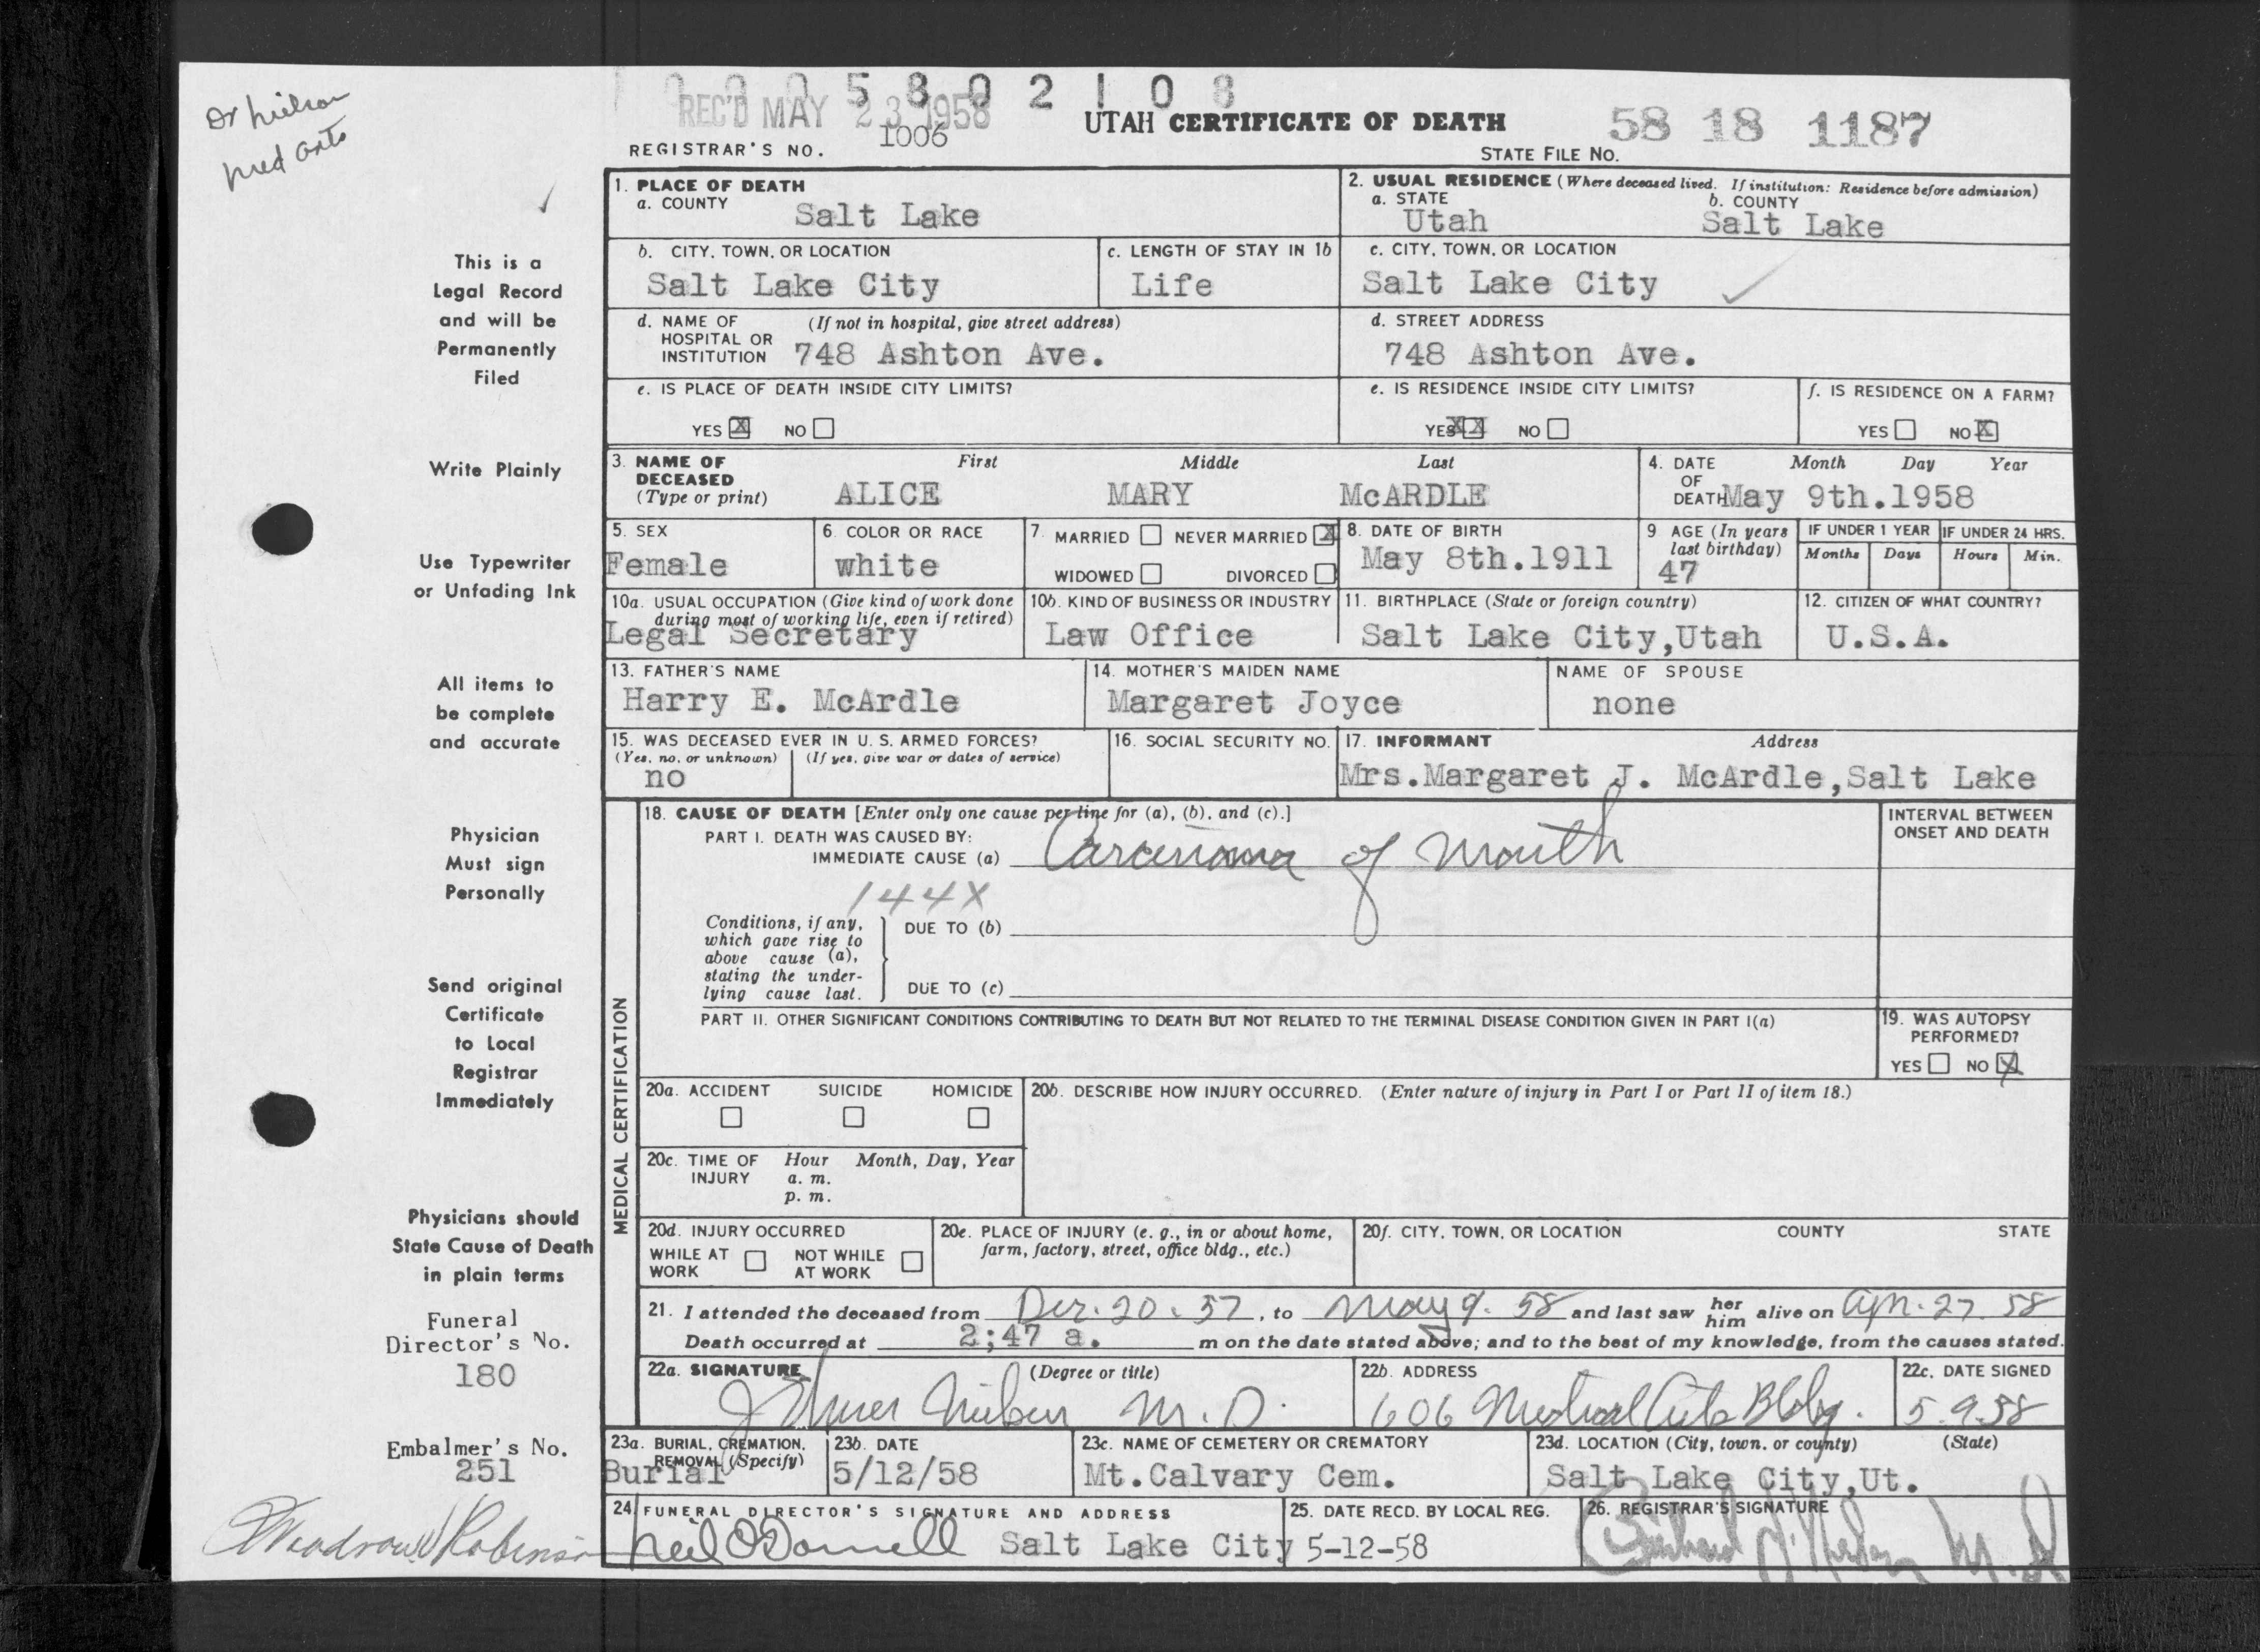 Dr Nielson
Med Arts
0 0 0 5 8 0 2 1 0 8
REC'D MAY 23 1958
1006
REGISTRAR'S NO.
UTAH CERTIFICATE OF DEATH
58 18 1187
STATE FILE NO.
This is a
Legal Record
and will be
Permanently
Filed
Write Plainly
Use Typewriter
or Unfading Ink
All items to
be complete
and accurate
Physician
Must sign
Personally
Send original
Certificate
to Local
Registrar
Immediately
Physicians should
State Cause of Death
in plain terms
Funeral
Director's No.
180
Embalmer's No.
251
Woodrow Robinson
1. PLACE OF DEATH
a. COUNTY
Salt Lake
2. USUAL RESIDENCE (Where deceased lived. If institution: Residence before admission)
a. STATE
Utah
b. COUNTY
Salt Lake
b. CITY, TOWN, OR LOCATION
Salt Lake City
c. LENGTH OF STAY IN 1b
Life
c. CITY, TOWN, OR LOCATION
Salt Lake City
d. NAME OF HOSPITAL OR INSTITUTION (If not in hospital, give street address)
748 Ashton Ave.
d. STREET ADDRESS
748 Ashton Ave.
e. IS PLACE OF DEATH INSIDE CITY LIMITS?
YES X NO
e. IS RESIDENCE INSIDE CITY LIMITS?
YES X X NO
f. IS RESIDENCE ON A FARM?
YES NO X
3. NAME OF DECEASED (Type or print)
First Middle Last
ALICE MARY McARDLE
4. DATE OF DEATH Month Day Year
May 9th.1958
5. SEX
Female
6. COLOR OR RACE
white
7. MARRIED NEVER MARRIED X
WIDOWED DIVORCED
8. DATE OF BIRTH
May 8th.1911
9 AGE (In years last birthday)
47
IF UNDER 1 YEAR
Months Days
IF UNDER 24 HRS.
Hours Min.
10a. USUAL OCCUPATION (Give kind of work done during most of working life, even if retired)
Legal Secretary
10b. KIND OF BUSINESS OR INDUSTRY
Law Office
11. BIRTHPLACE (State or foreign country)
Salt Lake City,Utah
12. CITIZEN OF WHAT COUNTRY?
U.S.A.
13. FATHER'S NAME
Harry E. McArdle
14. MOTHER'S MAIDEN NAME
Margaret Joyce
NAME OF SPOUSE
none
15. WAS DECEASED EVER IN U. S. ARMED FORCES?
(Yes, no, or unknown) (If yes, give war or dates of service)
no
16. SOCIAL SECURITY NO.
17. INFORMANT Address
Mrs.Margaret J. McArdle,Salt Lake
MEDICAL CERTIFICATION
18. CAUSE OF DEATH [Enter only one cause per line for (a), (b), and (c).]
PART I. DEATH WAS CAUSED BY:
IMMEDIATE CAUSE (a) Carcinoma of mouth
144X
INTERVAL BETWEEN
ONSET AND DEATH
Conditions, if any,
which gave rise to
above cause (a),
stating the under-
lying cause last.
DUE TO (b)
DUE TO (c)
PART II. OTHER SIGNIFICANT CONDITIONS CONTRIBUTING TO DEATH BUT NOT RELATED TO THE TERMINAL DISEASE CONDITION GIVEN IN PART I(a)
19. WAS AUTOPSY
PERFORMED?
YES NO X
20a. ACCIDENT SUICIDE HOMICIDE
20b. DESCRIBE HOW INJURY OCCURRED. (Enter nature of injury in Part I or Part II of item 18.)
20c. TIME OF INJURY Hour Month, Day, Year
a. m.
p. m.
20d. INJURY OCCURRED
WHILE AT WORK NOT WHILE AT WORK
20e. PLACE OF INJURY (e. g., in or about home,
farm, factory, street, office bldg., etc.)
20f. CITY, TOWN, OR LOCATION COUNTY STATE
21. I attended the deceased from Dec. 20. 57, to May 9. 58 and last saw her him alive on Apr. 27 58
Death occurred at 2;47 a. m on the date stated above; and to the best of my knowledge, from the causes stated.
22a. SIGNATURE (Degree or title)
J Elmer Nielsen M.D.
22b. ADDRESS
606 Medical Arts Bldg.
22c. DATE SIGNED
5.9.58
23a. BURIAL, CREMATION, REMOVAL (Specify)
Burial
23b. DATE
5/12/58
23c. NAME OF CEMETERY OR CREMATORY
Mt.Calvary Cem.
23d. LOCATION (City, town, or county) (State)
Salt Lake City,Ut.
24 FUNERAL DIRECTOR'S SIGNATURE AND ADDRESS
Neil O'Donnell Salt Lake City
25. DATE RECD. BY LOCAL REG.
5-12-58
26. REGISTRAR'S SIGNATURE
M.D.